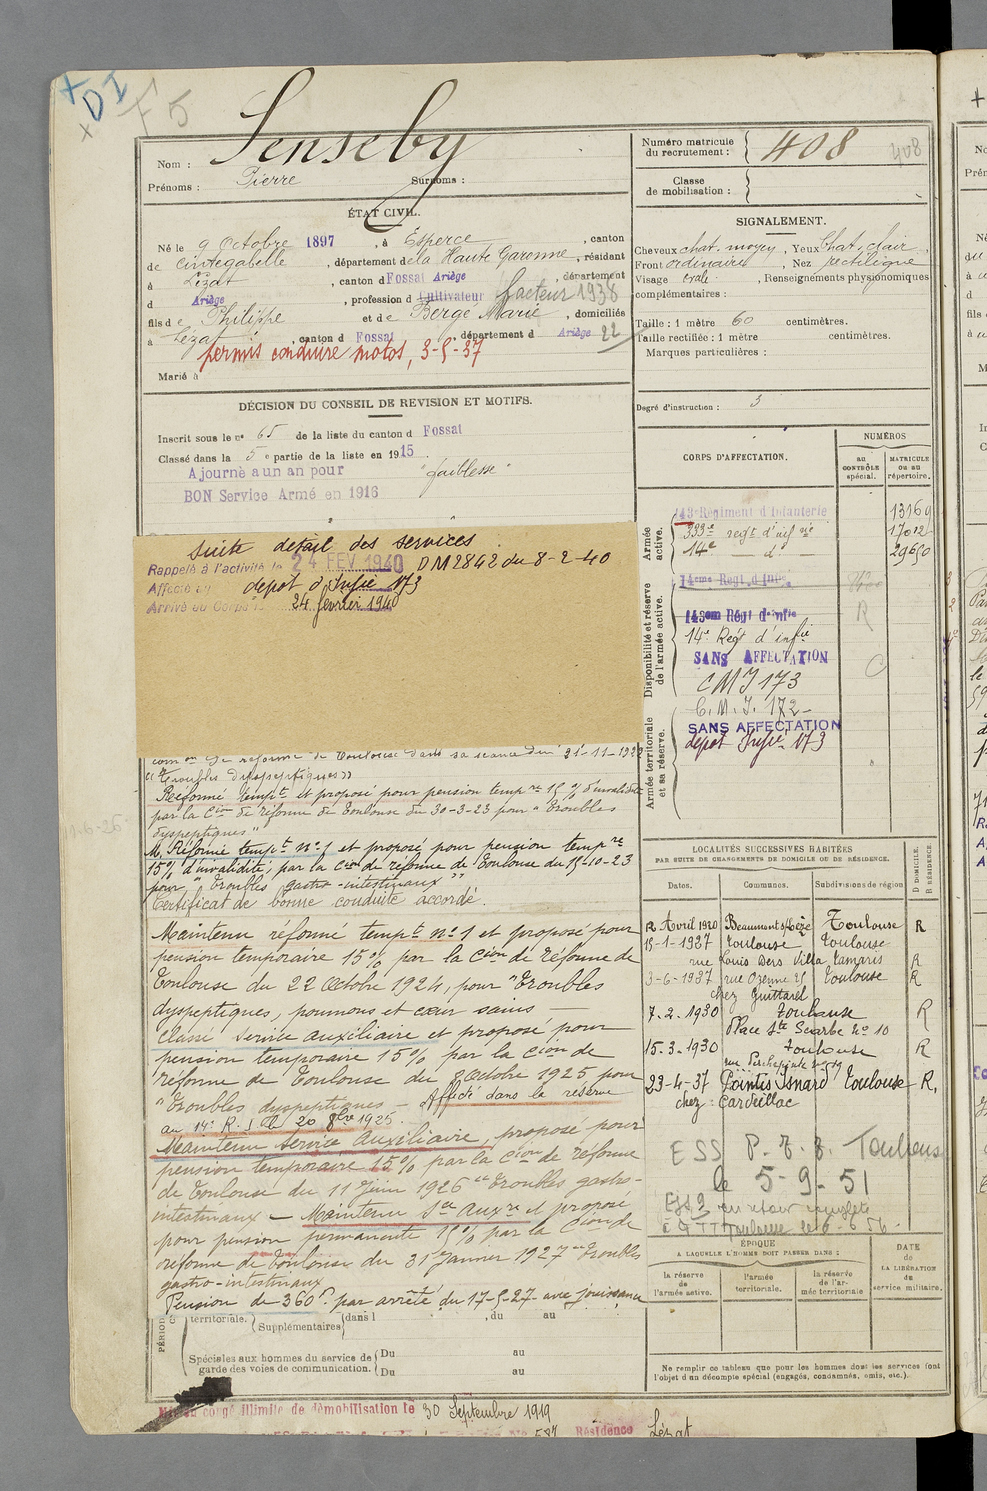 + DI
× F5
Nom : Senseby
Prénoms : Pierre Surnoms :
Numéro matricule du recrutement : 408 408
Classe de mobilisation :
ÉTAT CIVIL.
Né le 9 Octobre 1897, à Esperce, canton
de Cintegabelle, département de la Haute Garonne, résidant
à Lézat, canton d Fossat Ariège, département
d Ariège, profession d Cultivateur facteur 1938
fils de Philippe et de Berge Marie, domiciliés
à Lézat, canton d Fossat, département d Ariège 22
permis conduire motos, 3-5-37
Marié à
SIGNALEMENT.
Cheveux chat. moyen, Yeux Chat. clair,
Front ordinaire, Nez rectiligne
Visage ovale, Renseignements physionomiques
complémentaires :
Taille : 1 mètre 60 centimètres.
Taille rectifiée : 1 mètre centimètres.
Marques particulières :
Degré d'instruction : 3
DÉCISION DU CONSEIL DE REVISION ET MOTIFS.
Inscrit sous le n° 65 de la liste du canton d Fossat
Classé dans la 5e partie de la liste en 1915
Ajourné a un an pour "faiblesse"
BON Service Armé en 1916
suite détail des services
Rappelé à l'activité le 24 FEV 1940 DM 2842 du 8-2-40
Affecté au depot d'Infie 173
Arrivé au Corps le 24 février 1940
CORPS D'AFFECTATION.
NUMÉROS
AU CONTRÔLE spécial.
MATRICULE OU AU répertoire.
Armée active.
143e Régiment d'Infanterie 13169
333e regt d'inf rie 17012
14e — d° — 29650
Disponibilité et réserve de l'armée active.
14eme Regt. d'Infie.
143em Régt d'infie R
14e Regt d'infie
SANS AFFECTATION
CMI 173
Armée territoriale et sa réserve.
C.M.I. 172
SANS AFFECTATION
depot Infie 173
com on de réforme de Toulouse dans sa séance du 21-11-1922
"Troubles dyspeptiques"
Réformé tempre et proposé pour pension tempre 15 % d'invalidité
par la Cion de réforme de Toulouse du 30-3-23 pour "Troubles
dyspeptiques"
11-6-26
M. Réformé tempt n°1 et proposé pour pension tempre
15% d'invalidité, par la Cion de réforme de Toulouse du 15-10-23
pour "troubles gastro-intestinaux"
Certificat de bonne conduite accordé.
Maintenu réformé tempre n°1 et proposé pour
pension temporaire 15% par la Cion de réforme de
Toulouse du 22 Octobre 1924, pour "Troubles
dyspeptiques, poumons et cœur sains —
Classé service auxiliaire et proposé pour
pension temporaire 15% par la Cion de
réforme de Toulouse du 2 Octobre 1925 pour
"Troubles dyspeptiques — Affecté dans la réserve
au 14e R.I le 20 8bre 1925.
Maintenu Service Auxiliaire, proposé pour
pension temporaire 15% par la Cion de réforme
de Toulouse du 11 Juin 1926 "Troubles gastro-
intestinaux — Maintenu Sce auxre et proposé
pour pension permanente 15% par la Cion de
réforme de Toulouse du 31 Janvier 1927 "Troubles
gastro-intestinaux
Pension de 360 f. par arrêté du 17-5-27 avec jouissance
LOCALITÉS SUCCESSIVES HABITÉES
PAR SUITE DE CHANGEMENTS DE DOMICILE OU DE RÉSIDENCE.
Dates. Communes. Subdivisions de région D DOMICILE. R RÉSIDENCE.
12 Avril 1920 Beaumont s/Lèze Toulouse R
15-1-1927 Toulouse Toulouse
rue Louis Ders Villa Tamaris R
3-6-1927 rue Ozenne 25 Toulouse R
chez Guittard
7.2.1930 Toulouse R
Place Ste Scarbe N° 10
15.3.1930 Toulouse R
rue Perchepinte
23-4-37 Pointis Isnard Toulouse R,
chez : Cardeillac
ESS P.T.T. Toulouse
le 5-9-51
ÉPOQUE
A LAQUELLE L'HOMME DOIT PASSER DANS :
la réserve de l'armée active.
l'armée territoriale.
la réserve de l'armée territoriale
DATE de LA LIBÉRATION du service militaire.
territoriale. Supplémentaires dans l , du au
Spéciales aux hommes du service de garde des voies de communication. Du au
Du au
Ne remplir ce tableau que pour les hommes dont les services font
l'objet d'un décompte spécial (engagés, condamnés, omis, etc.).
Mis en congé illimité de démobilisation le 30 Septembre 1919
587 Résidence Lézat